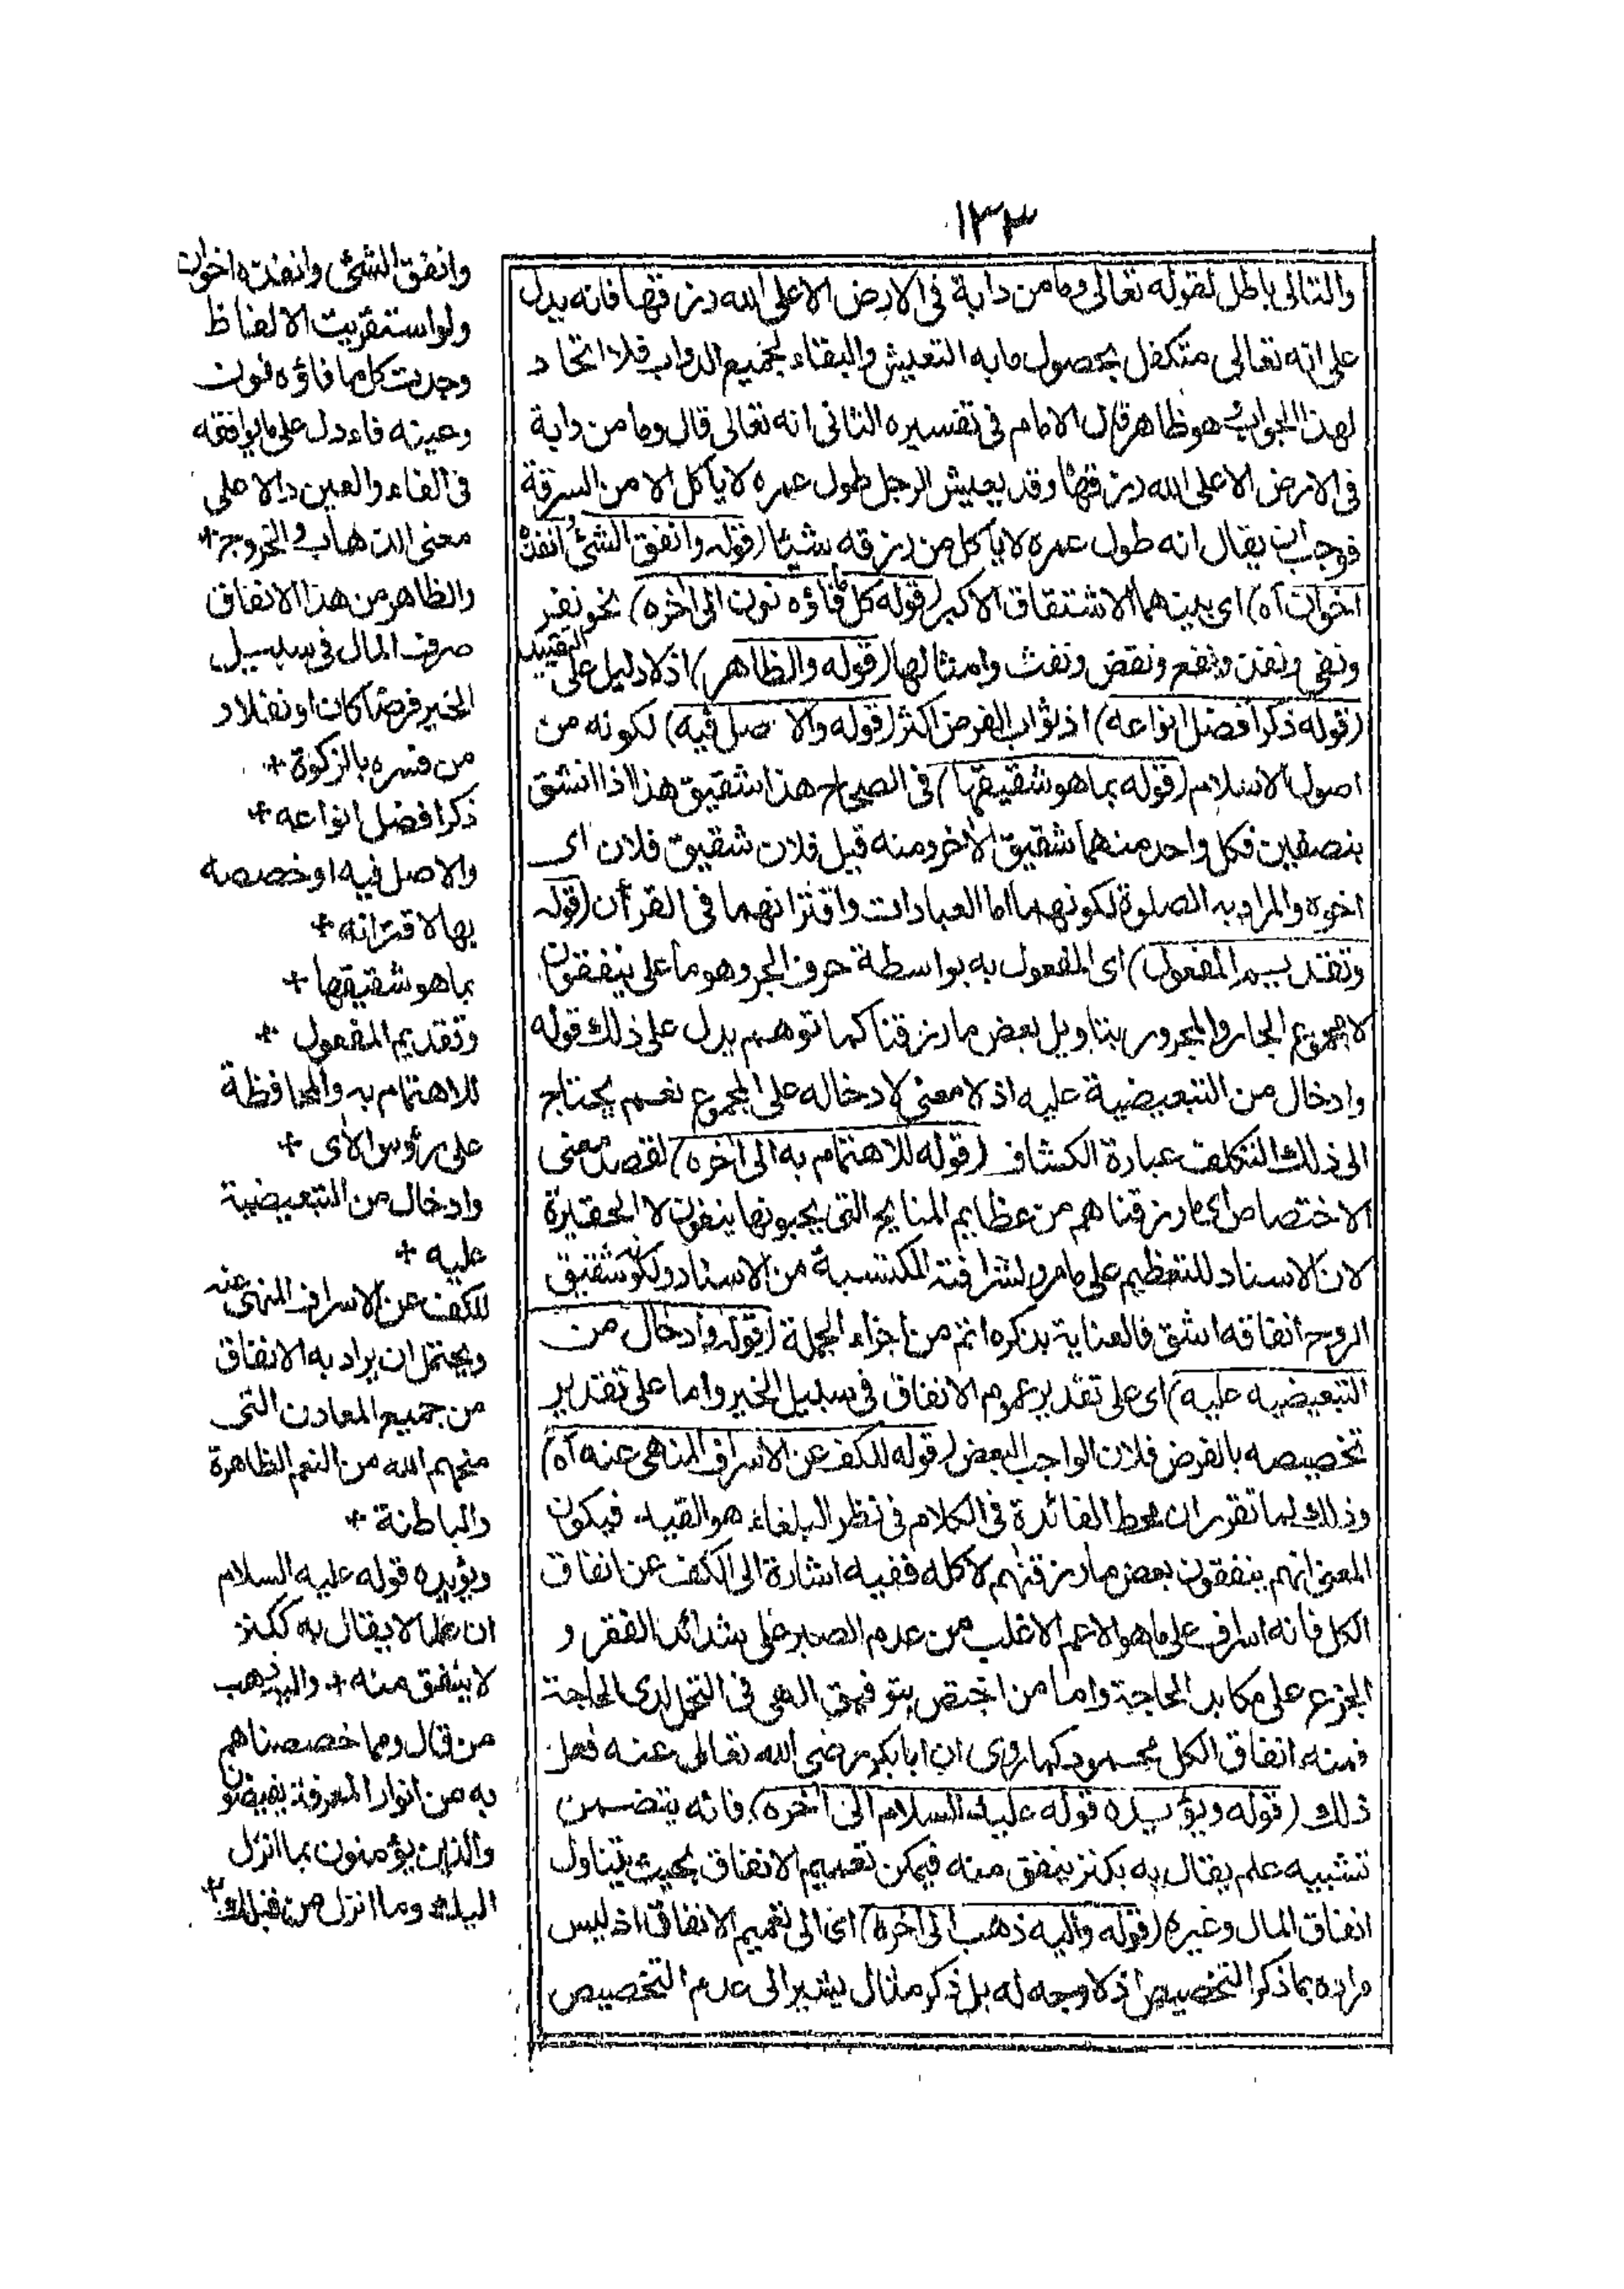 ١٣٣
والتالى باطل لقوله تعالى وما من دابة فى الارض الا على الله رزقها فانه يدل
على انه تعالى متكفل بحصول ما به التعيش والبقاء لجميع الدواب فلا اتحاد
لهذا الجواب هو ظاهر قال الامام فى تفسيره الثانى انه تعالى قال وما من دابة
فى الارض الا على الله رزقها وقد يعيش الرجل طول عمره لا يأكل الا من السرقة
فوجب ان يقال انه طول عمره لا يأكل من رزقه شيئا (قوله وانفق الشئ انفذه
اخوات آه) اى بينهما الاشتقاق الاكبر (قوله كل ما فاؤه نون الى اخره) نحو نفر
ونفى ونفذ ونفع ونقض ونفث وامثالها (قوله والظاهر) اذ لا دليل على التقييد
(قوله ذكر افضل انواعه) اذ ثواب الفرض اكثر (قوله والاصل فيه) لكونه من
اصول الاسلام (قوله بما هو شقيقها) فى الصحاح هذا شقيق هذا اذا انشق
بنصفين فكل واحد منهما شقيق الاخر ومنه قيل فلان شقيق فلان اى
اخوه والمراد به الصلوة لكونهما اما العبادات واقترانهما فى القرأن (قوله
وتقديم المفعول) اى المفعول به بواسطة حرف الجر وهو ما على ينفقون
لا مجموع الجار والمجرور بتاويل بعض ما رزقنا كما توهم يدل على ذلك قوله
وادخال من التبعيضية عليه اذ لا معنى لادخاله على المجموع نعم يحتاج
الى ذلك التكلف عبارة الكشاف (قوله للاهتمام به الى اخره) لقصد معنى
الاختصاص اى ما رزقناهم من عظايم المنايح التى يحبونها ينفقون لا الحقيرة
لان الاسناد للتعظيم على ما مر ولشرافته المكتسبة من الاسناد ولكونه شقيق
الروح انفاقه اشق فالعناية بذكره اتم من اجزاء الجملة (قوله وادخال من
التبعيضيه عليه) اى على تقدير عموم الانفاق فى سبيل الخير واما على تقدير
تخصيصه بالفرض فلان الواجب البعض (قوله للكف عن الاسراف المنهى عنه آه)
وذلك لما تقرر ان محط الفائدة فى الكلام فى نظر البلغاء هو القيد فيكون
المعنى انهم ينفقون بعض ما رزقنهم لا كله ففيه اشارة الى الكف عن انفاق
الكل فانه اسراف على ما هو الاعم الاغلب من عدم الصبر على شدائد الفقر و
الجزع على مكابد الحاجة واما من اختص بتوفيق الهى فى التحمل لدى الحاجة
فمنه انفاق الكل محمود كما روى ان ابا بكر رضى الله تعالى عنه فعل
ذلك (قوله ويؤيده قوله عليه السلام الى اخره) فانه يتضمن
تشبيه علم يقال به بكنز ينفق منه فيمكن تعميم الانفاق بحيث يتناول
انفاق المال وغيره (قوله واليه ذهب الى اخره) اى الى تعميم الانفاق اذ ليس
مراده بما ذكر التخصيص اذ لا وجه له بل ذكر مثال يشير الى عدم التخصيص
وانفق الشئ وانفذه اخوان
ولو استقريت الالفاظ
وجدت كل ما فاؤه نون
وعينه فاء دل على ما يوافقه
فى الفاء والعين دالا على
معنى الذهاب والخروج +
والظاهر من هذا الانفاق
صرف المال فى سبيل
الخير فرضا كان او نفلا و
من فسره بالزكوة +
ذكر افضل انواعه +
والاصل فيه او خصصه
بها لاقترانه +
بما هو شقيقها +
وتقديم المفعول +
للاهتمام به والمحافظة
على رؤس الأى +
وادخال من التبعيضية
عليه +
للكف عن الاسراف المنهى عنه
ويحتمل ان يراد به الانفاق
من جميع المعادن التى
منحهم الله من النعم الظاهرة
والباطنة +
ويؤيده قوله عليه السلام
ان علما لا يقال به ككنز
لا ينفق منه + واليه ذهب
من قال ومما خصصناهم
به من انوار المعرفة يفيضون
والذين يؤمنون بما انزل
اليك وما انزل من قبلك +